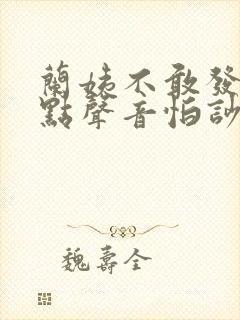 蘭姨不敢發
點聲音怕訬
魏壽全